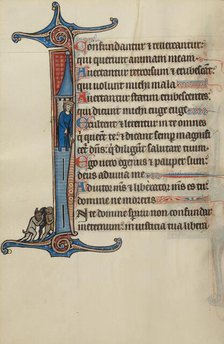 Confundantur et reuereantur:
qui querunt animam meam
Auertantur retrorsum et erubescant:
qui uolunt michi mala
Auertantur statim erubescentes:
qui dicunt michi euge euge
Exultent et letentur in te omnes
qui querunt te: et dicant semper magnifi
cetur dominus qui diligunt salutare tuum
Ego uero egenus et pauper sum:
deus adiuua me
Adiutor meus et liberator meus es tu:
domine ne moreris
In te domine speraui non confundar
in eternum: in iusticia tua libera